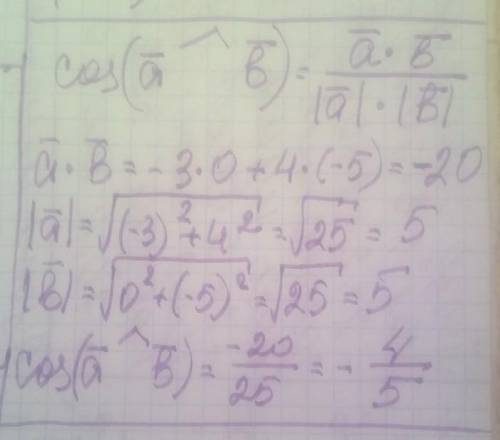 cos(a̅ ^ b̅) = a̅ · b̅ / |a̅| · |b̅|
a̅ · b̅ = -3·0 + 4·(-5) = -20
|a̅| = √((-3)² + 4²) = √25 = 5
|b̅| = √(0² + (-5)²) = √25 = 5
cos(a̅ ^ b̅) = -20/25 = - 4/5